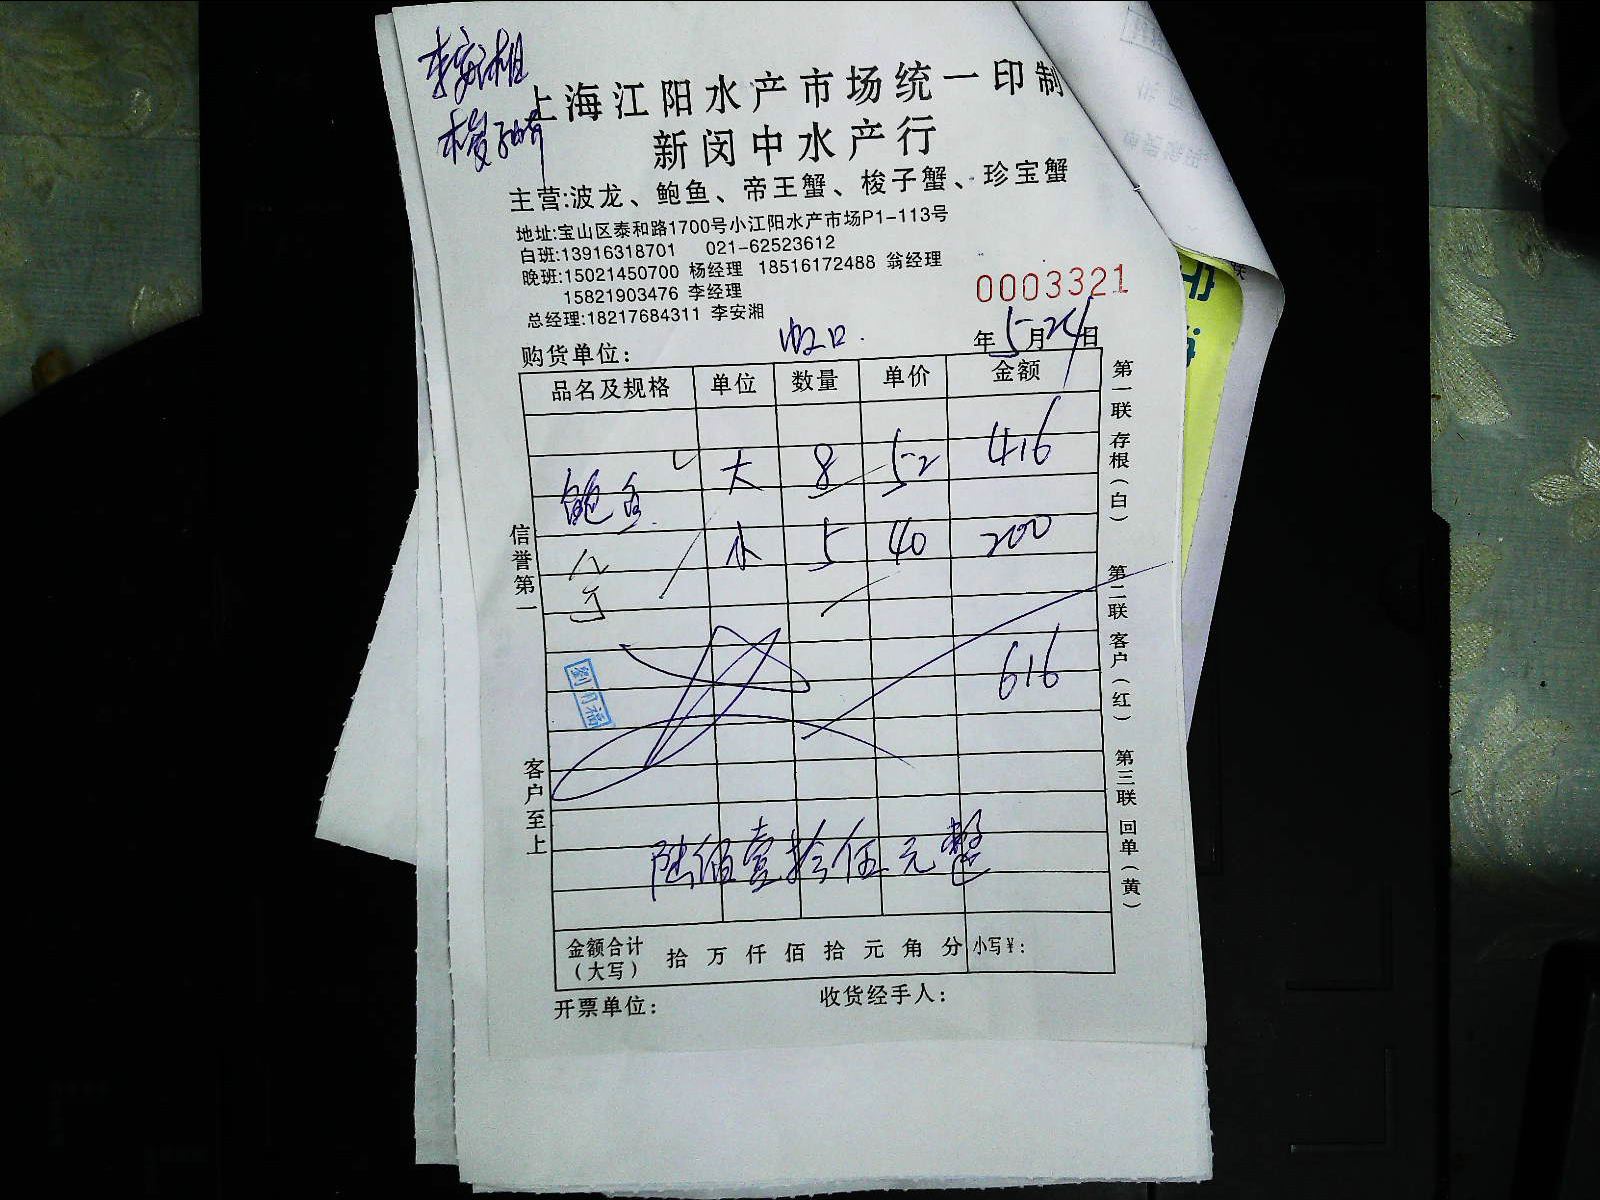 李安湘
上海江阳水产市场统一印制
新闵中水产行
主营:波龙、鲍鱼、帝王蟹、梭子蟹、珍宝蟹
地址:宝山区泰和路1700号小江阳水产市场P1-113号
白班:13916318701 021-62523612
晚班:15021450700 杨经理 18516172488 翁经理
15821903476 李经理
总经理:18217684311 李安湘
0003321
购货单位: 虹口. 年5月24日
品名及规格 单位 数量 单价 金额
鲍鱼 大 8 52 416
小 5 40 200
616
劉月福
陆佰壹拾伍元整
金额合计（大写） 拾 万 仟 佰 拾 元 角 分 小写¥:
开票单位: 收货经手人:
信誉第一
客户至上
第一联 存根（白）
第二联 客户（红）
第三联 回单（黄）